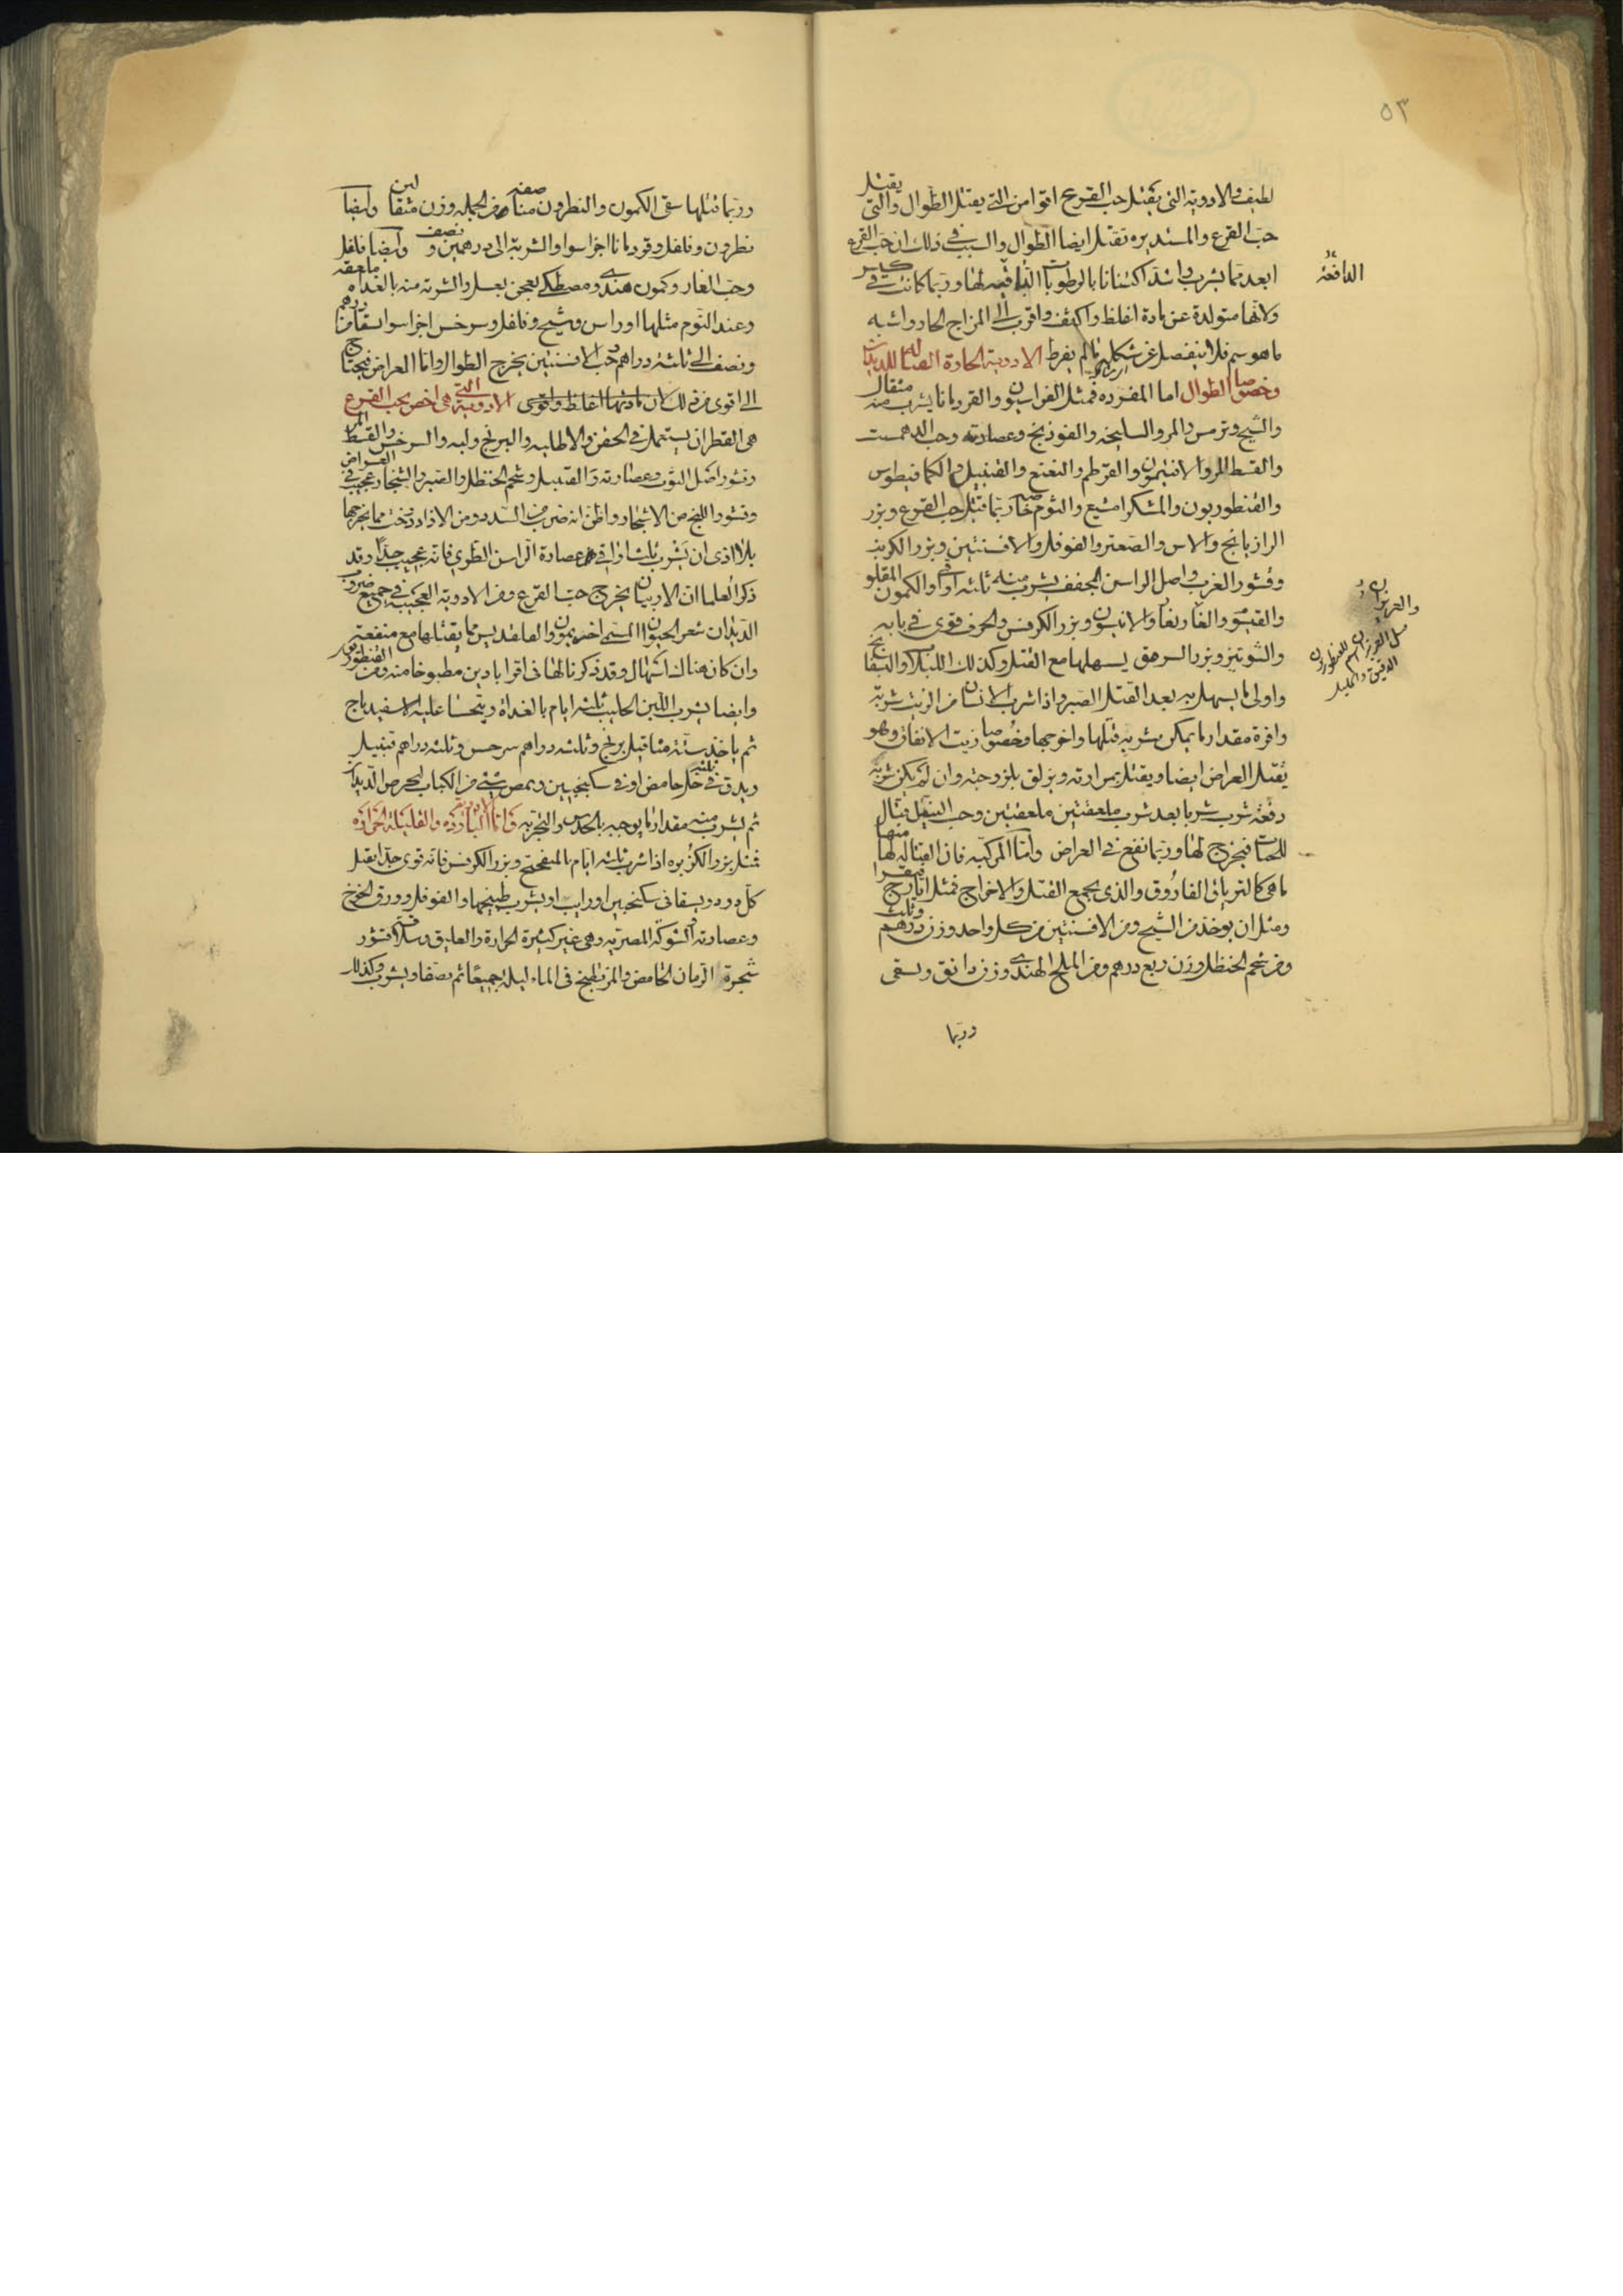 ٥٣
لطيف والادوية التى تقتل حب القرع اقوا من التى يقتل الطوال والتى يقتل
حب القرع والمستديره تقتل ايضا الطوال والسبب فى ذلك ان حب القرع
ابعد مما يشرب واشد اكتنانا بالرطوبات الدافعه لها وربما كانت فى كيس
الدافعة
ولانها متولدة عن مادة اغلظ واكثف واقرب الى المزاج الحار واشبه
ما هو سم فلا ينفصل عن شكله ما لم يفرط الادوية الحارة القتاله للديدان
وخصوصا الطوال اما المفرده فمثل الفراسيون والقردمانا يشرب منه مثقال
والشيح وترمس والمر والسليخه والفوذنج وعصارته وحب الدهمست
والقسط المر والافتيمون والقرطم والنعنع والقنبيل والكمافيطوس
والقنطوريون والمشكرامشيع والثوم خاصه ربما قتل حب القرع وبزر
الرازيانج والاس والصعتر والفوفل والافسنتين وبزر الكرنب
وقشور الغرب واصل الراسن المجفف يشرب منه ثلثه اواق والكمون المقلو
والقيسوم والغاريقا والانيسون وبزر الكرفس والحرف قوى فى بابه
والشونيز وبزر السرمق يسهلها مع القتل وكذلك اللبلاب والبسفايج
واولى ما يسهل به بعد القتل الصبر واذا شرب الانسان من الزيت شربة
وافرة مقدار ما يمكن شربه قتلها واخرجها وخصوصا زيت الانفاق وهو
يقتل العراض ايضا ويقتل بمرارته ويزلق بلزوجته وان لم يكن شربه
دفعة شرب شربا بعد شرب ملعقتين ملعقتين وحب النيل قتال
للحيات فيخرج لها وربما نفع فى العراض واما المركبه فان القتاله لها منها
ما هى كالترياق الفاروق والذى يجمع القتل والاخراج فمثل ايارج فيقرا
ومثل ان يوخذ من الشيح ومن الافسنتين من كل واحد وزن درهم وثلث
ومن شحم الحنظل وزن ربع درهم ومن الملح الهندى وزن دانق ويسقى
وربما
وربما قتلها سقى الكمون والنطرون مناصفه من الجمله وزن مثقالين وايضا
نطرون وفلفل وقردمانا اجزا سوا والشربه الى درهمين ونصف وايضا فلفل
وحب الغار وكمون هندى ومصطكى يعجن بعسل والشربه منه بالغداه ملعقه
وعند النوم مثلها او راس وشيح وفلفل وسرخس اجزا سوا يسقا من درهم
ونصف الى ثلثه دراهم حب الافسنتين يخرج الطوال واما العراض فيحتاج
الى اقوى من ذلك لان مادتها اغلظ واقوى الادوية التى هى اخص بحب القرع
هى القطران يستعمل فى الحقن والاطليه والبرنج ولبه والسرخس والقسط المر
وقشور اصل التوت وعصارته والقنبيل وشحم الحنظل والصبر والشنجار عجيب فى العراض
وقشور اللبخ من الاشجار واظن انه ضرب من السدر ومن الازاددرخت مما يخرجها
بلا اذى ان يشرب ثلث اواقى من عصارة الراسن الطرى فانه عجيب جدا وقد
ذكر العلما ان الاربيان يخرج حب القرع ومن الادوية العجيبة فى جميع ضروب
الديدان شعر الحيوان المسمى اخريمون والقلقديس مما يقتلها مع منفعته
وان كان هناك اسهال وقد ذكرنا لها فى اقراباذين مطبوخا منه ومن القنطوريون
وايضا يشرب اللبن الحليب ثلثه ايام بالغداة ويتحسا عليه الاسفيدباج
ثم ياخذ ستة مثاقيل برنج وثلثه دراهم سرخس وثلثه دراهم قنبيل
ويدق فى خل حامض او فى سكنجبين ويمص شيئ من الكباب ليحرص الديدان
ثم يشرب منه مقدار ما يوجبه الحدس والتجربه فاما الادويه البارده والقليله الحراره
فمثل بزر الكزبره اذا شرب ثلثه ايام بالمفختج وبزر الكرفس فانه قوى جدا يقتل
كل دود ويسقا فى سكنجبين او رايب او يشرب طبيخها والفوفل وورق الخوخ
وعصارته والشوكة المصرية وهى غير كثيرة الحرارة والعليق وسلاقة قشور
شجرة الرمان الحامض والمز طبخ فى الماء ليلة جميعا ثم يصفا ويشرب وكذلك